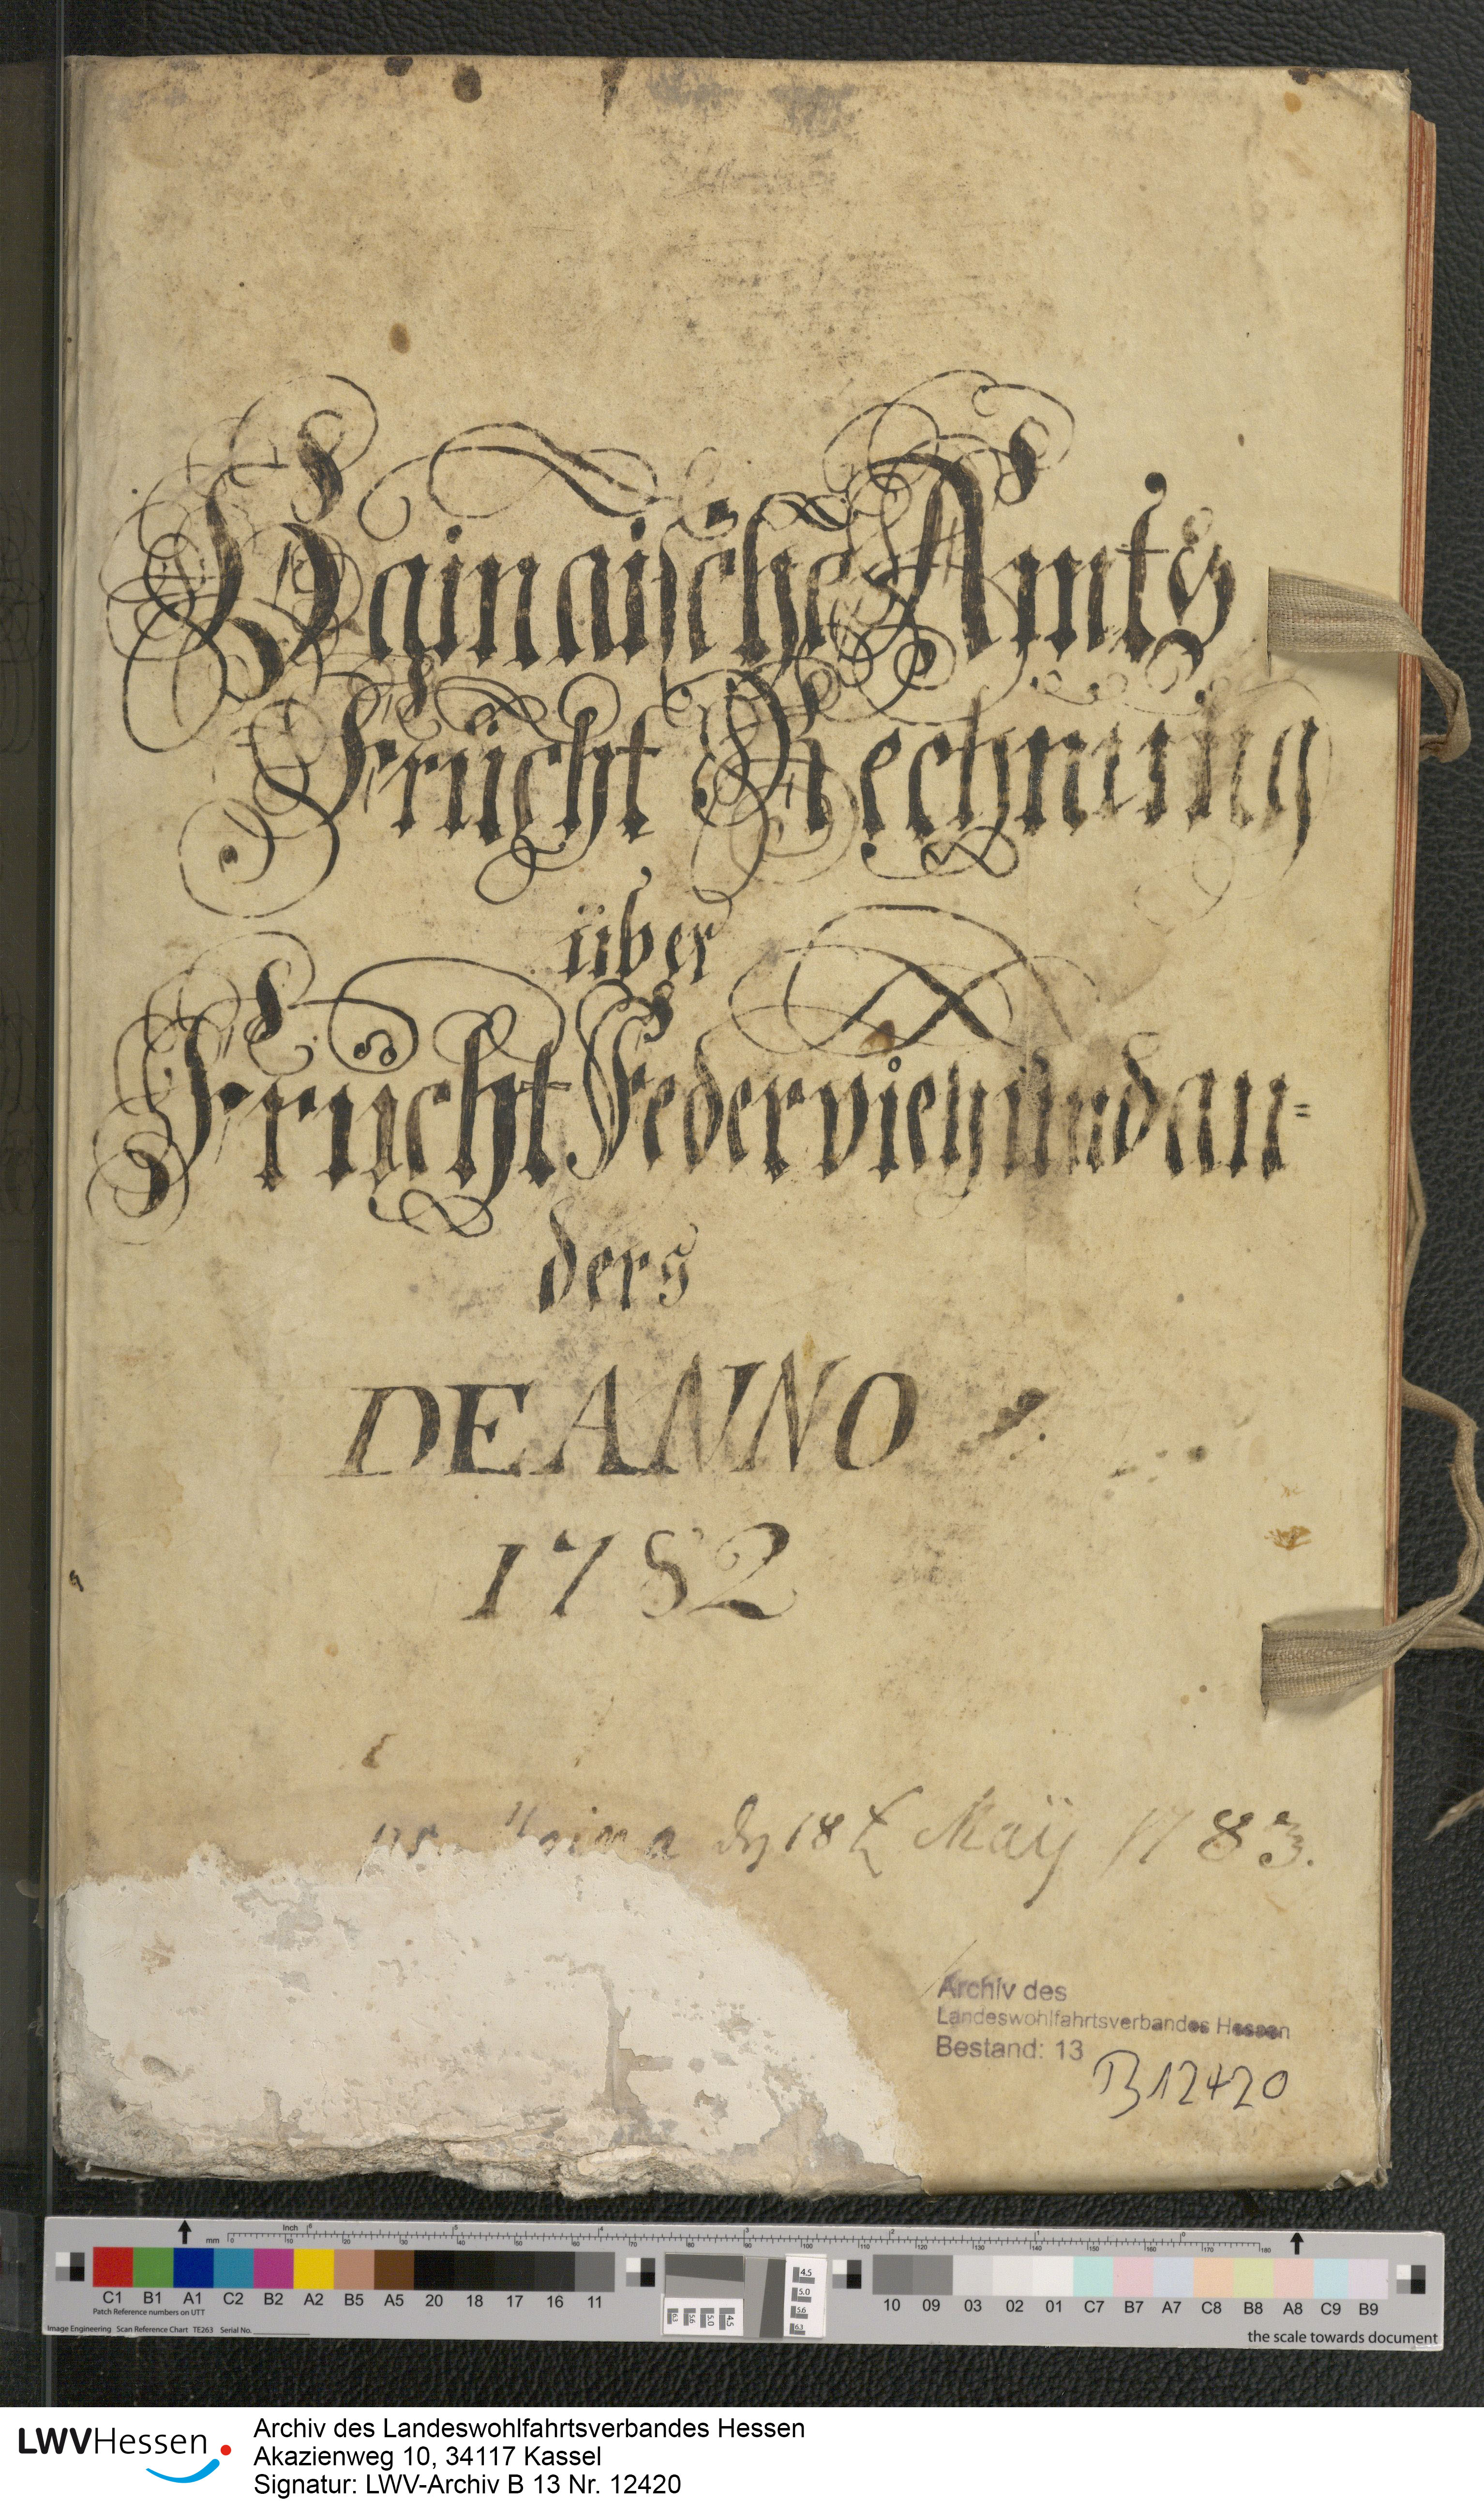 Hainaische Ambts
Frücht Rechnung
über
Frücht Federvieh und an=
ders
DE ANNO
1782
Haina d 18 t Maÿ 1783.
Archiv des
Landeswohlfahrtsverbandes Hessen
Bestand: 13
B 12420
mm Inch
C1 B1 A1 C2 B2 A2 B5 A5 20 18 17 16 11
10 09 03 02 01 C7 B7 A7 C8 B8 A8 C9 B9
Patch Reference numbers on UTT
Image Engineering Scan Reference Chart TE263 Serial No.
the scale towards document
LWVHessen
Archiv des Landeswohlfahrtsverbandes Hessen
Akazienweg 10, 34117 Kassel
Signatur: LWV-Archiv B 13 Nr. 12420